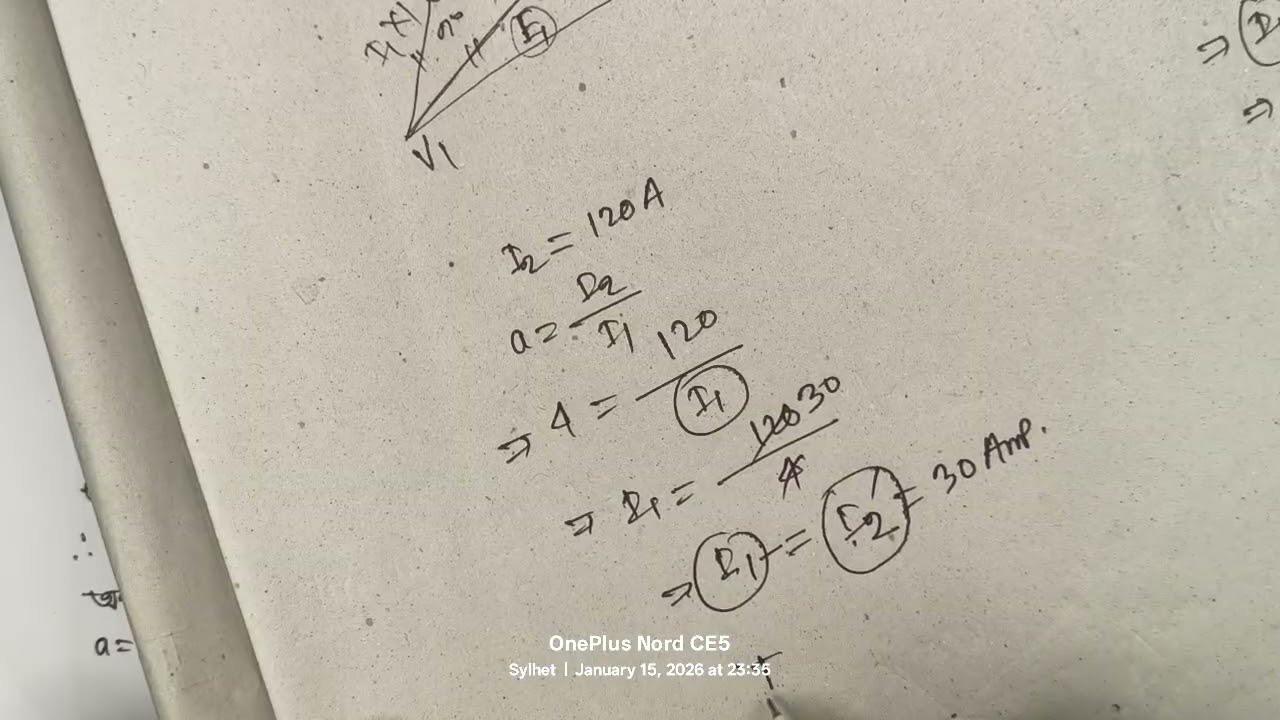 I₁X₁
E₁
V₁
I₂ = 120A
a = I₂/I₁
⇒ 4 = 120/I₁
⇒ I₁ = 120 30/4
⇒ I₁ = I₂' = 30 Amp.
a =
OnePlus Nord CE5
Sylhet | January 15, 2026 at 23:35